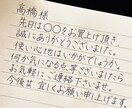 高橋様
先日は〇〇をお買上げ頂き、
誠にありがとうございました。
使い心地はいかがでしょうか。
何か気になる点等ございましたら
お気軽にご連絡下さいませ。
今後共宜しくお願い申し上げます